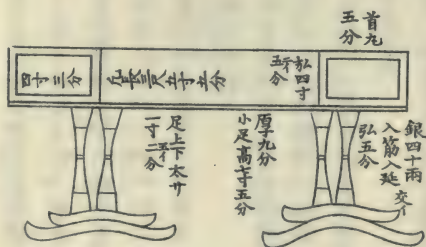 首九
五分
弘四寸
五分
九長三尺五寸五分
四寸三分
銀四十兩
入筋入延
弘五分
厚九分
小足高七寸五分
足上下太サ
一寸二分